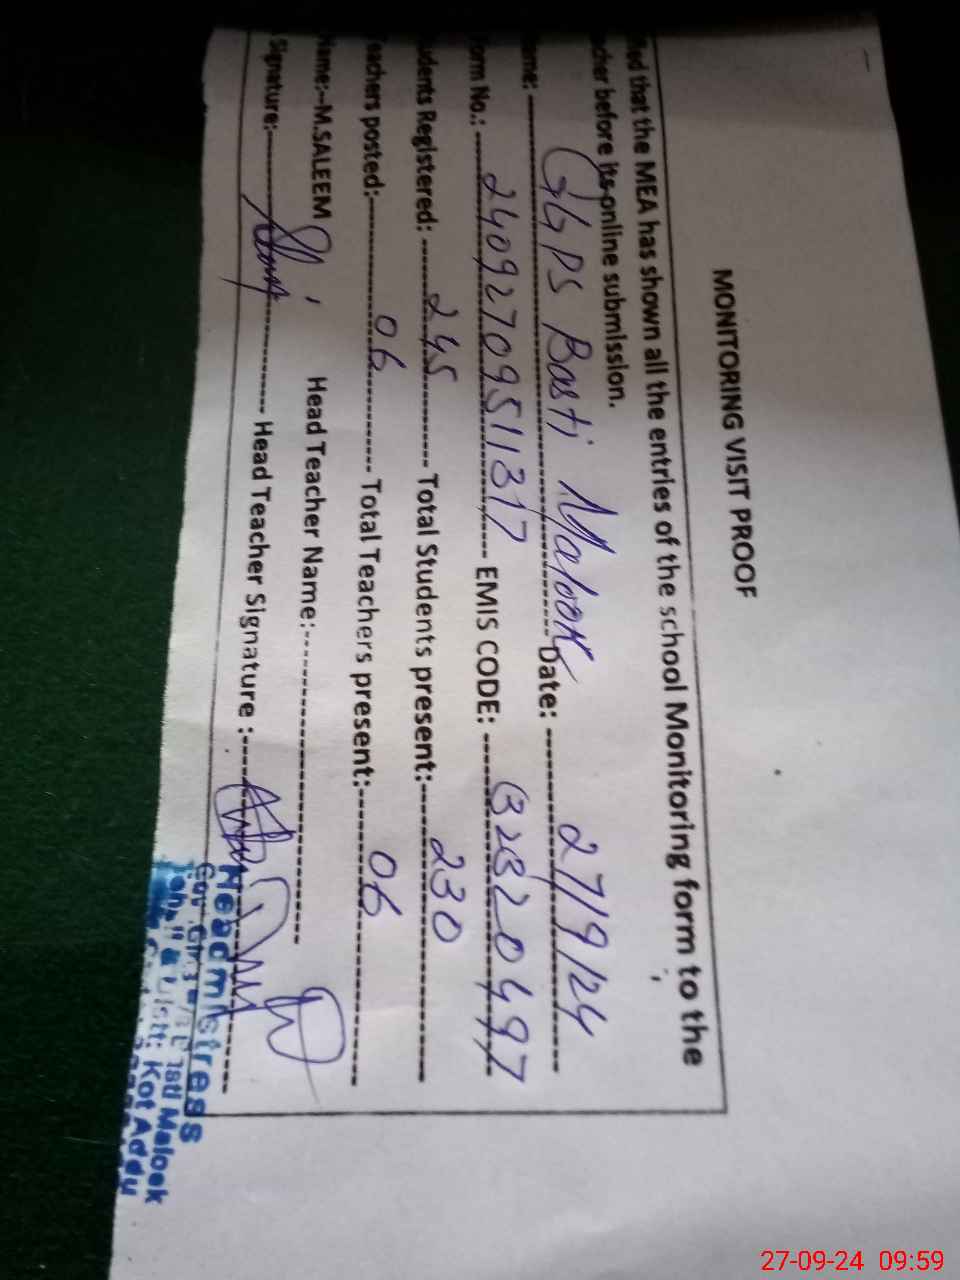 MONITORING VISIT PROOF
fied that the MEA has shown all the entries of the school Monitoring form to the
cher before its online submission.
ame: GGPS Basti Malook Date: 27/9/24
Form No.: 24092709511317 EMIS CODE: 32320497
udents Registered: 245 Total Students present: 230
Teachers posted: 06 Total Teachers present: 06
Name:--M.SALEEM Head Teacher Name:
Signature: Head Teacher Signature :
Headmistress
Malook
Kot Addu
27-09-24 09:59